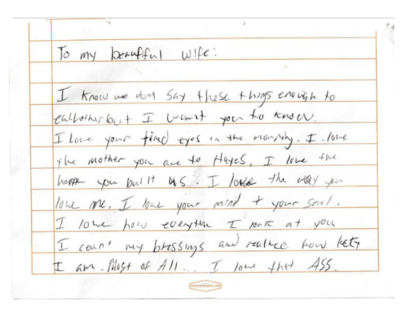 To my beautiful wife:
I know we dont say these things enough to
eachother but I want you to know.
I love your tired eyes in the morning. I love
the mother you are to Hayes. I love the
home you built us. I love the way you
love me. I love your mind + your soul.
I love how everytime I look at you
I count my blessings and realize how lucky
I am. Most of All... I love that ASS.